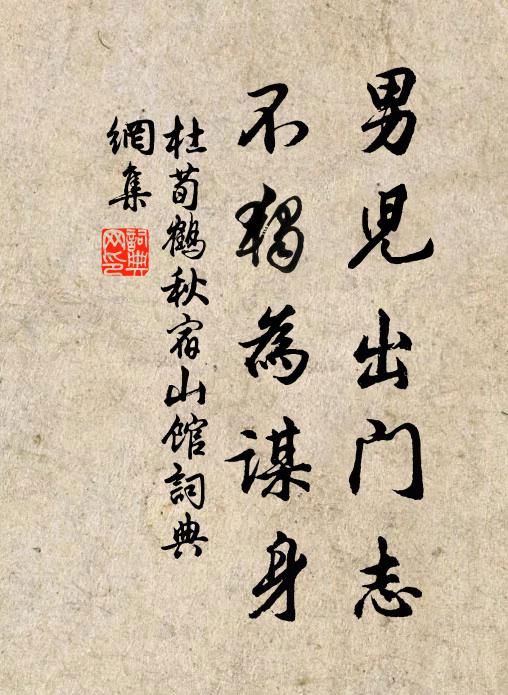 男兒出門志
不獨為謀身
杜荀鶴秋宿山館詞典
網集
詞典
网印